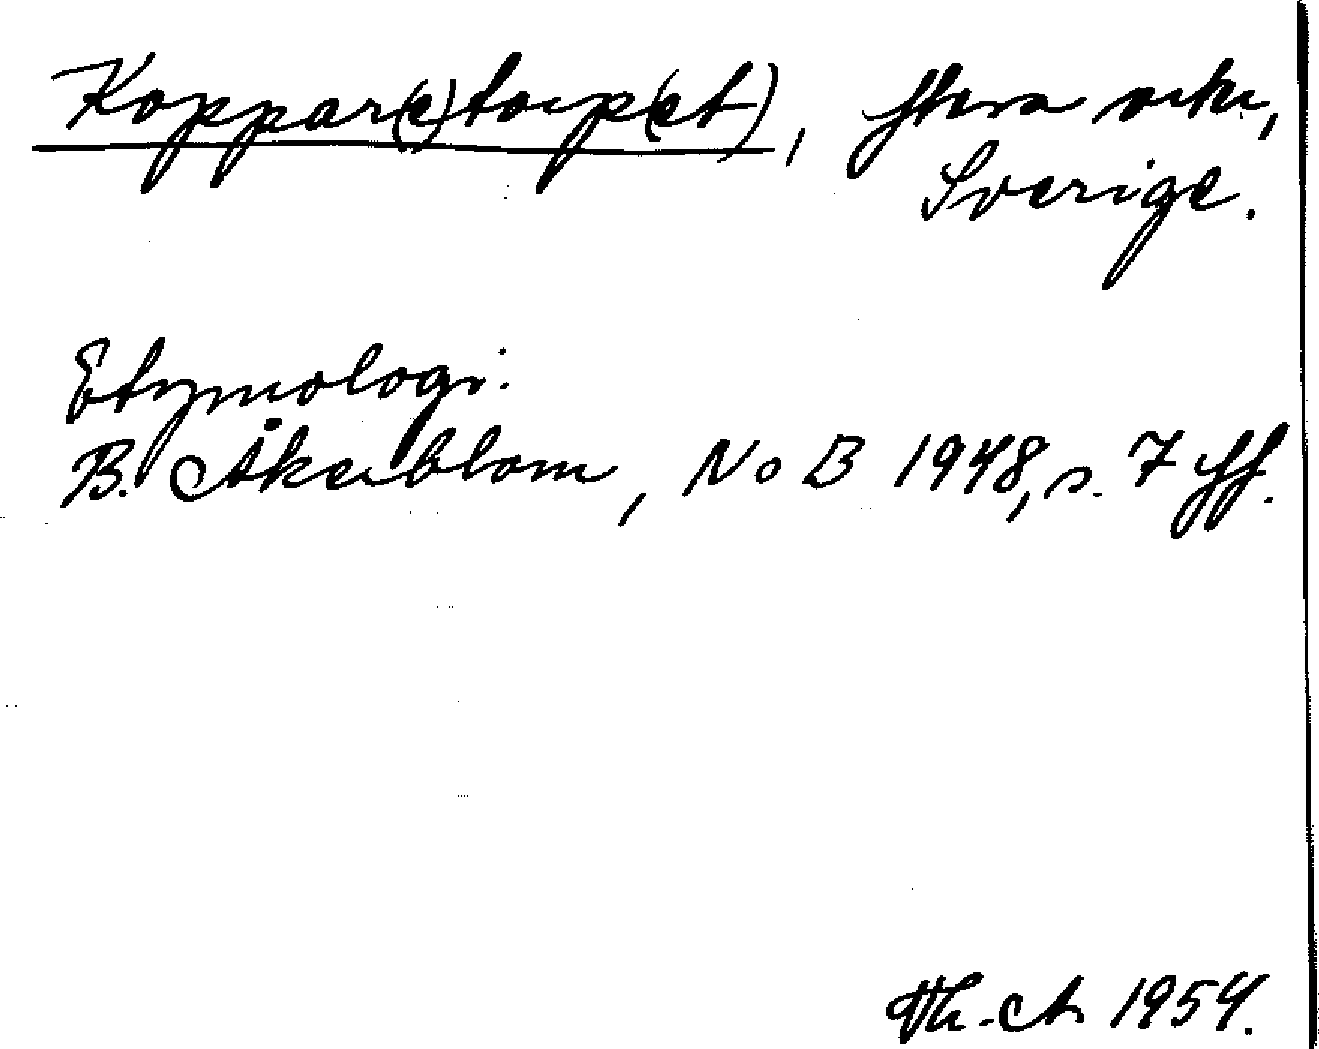 Koppar(e)torp(et), flera orter,
Sverige.
Etymologi:
B. Åkerblom, NoB 1948, s. 7 ff.
1954.